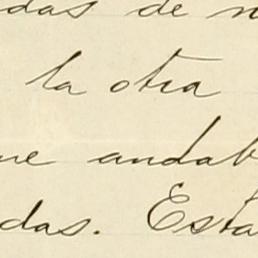 das de n
la otra
ue andab
das. Esta